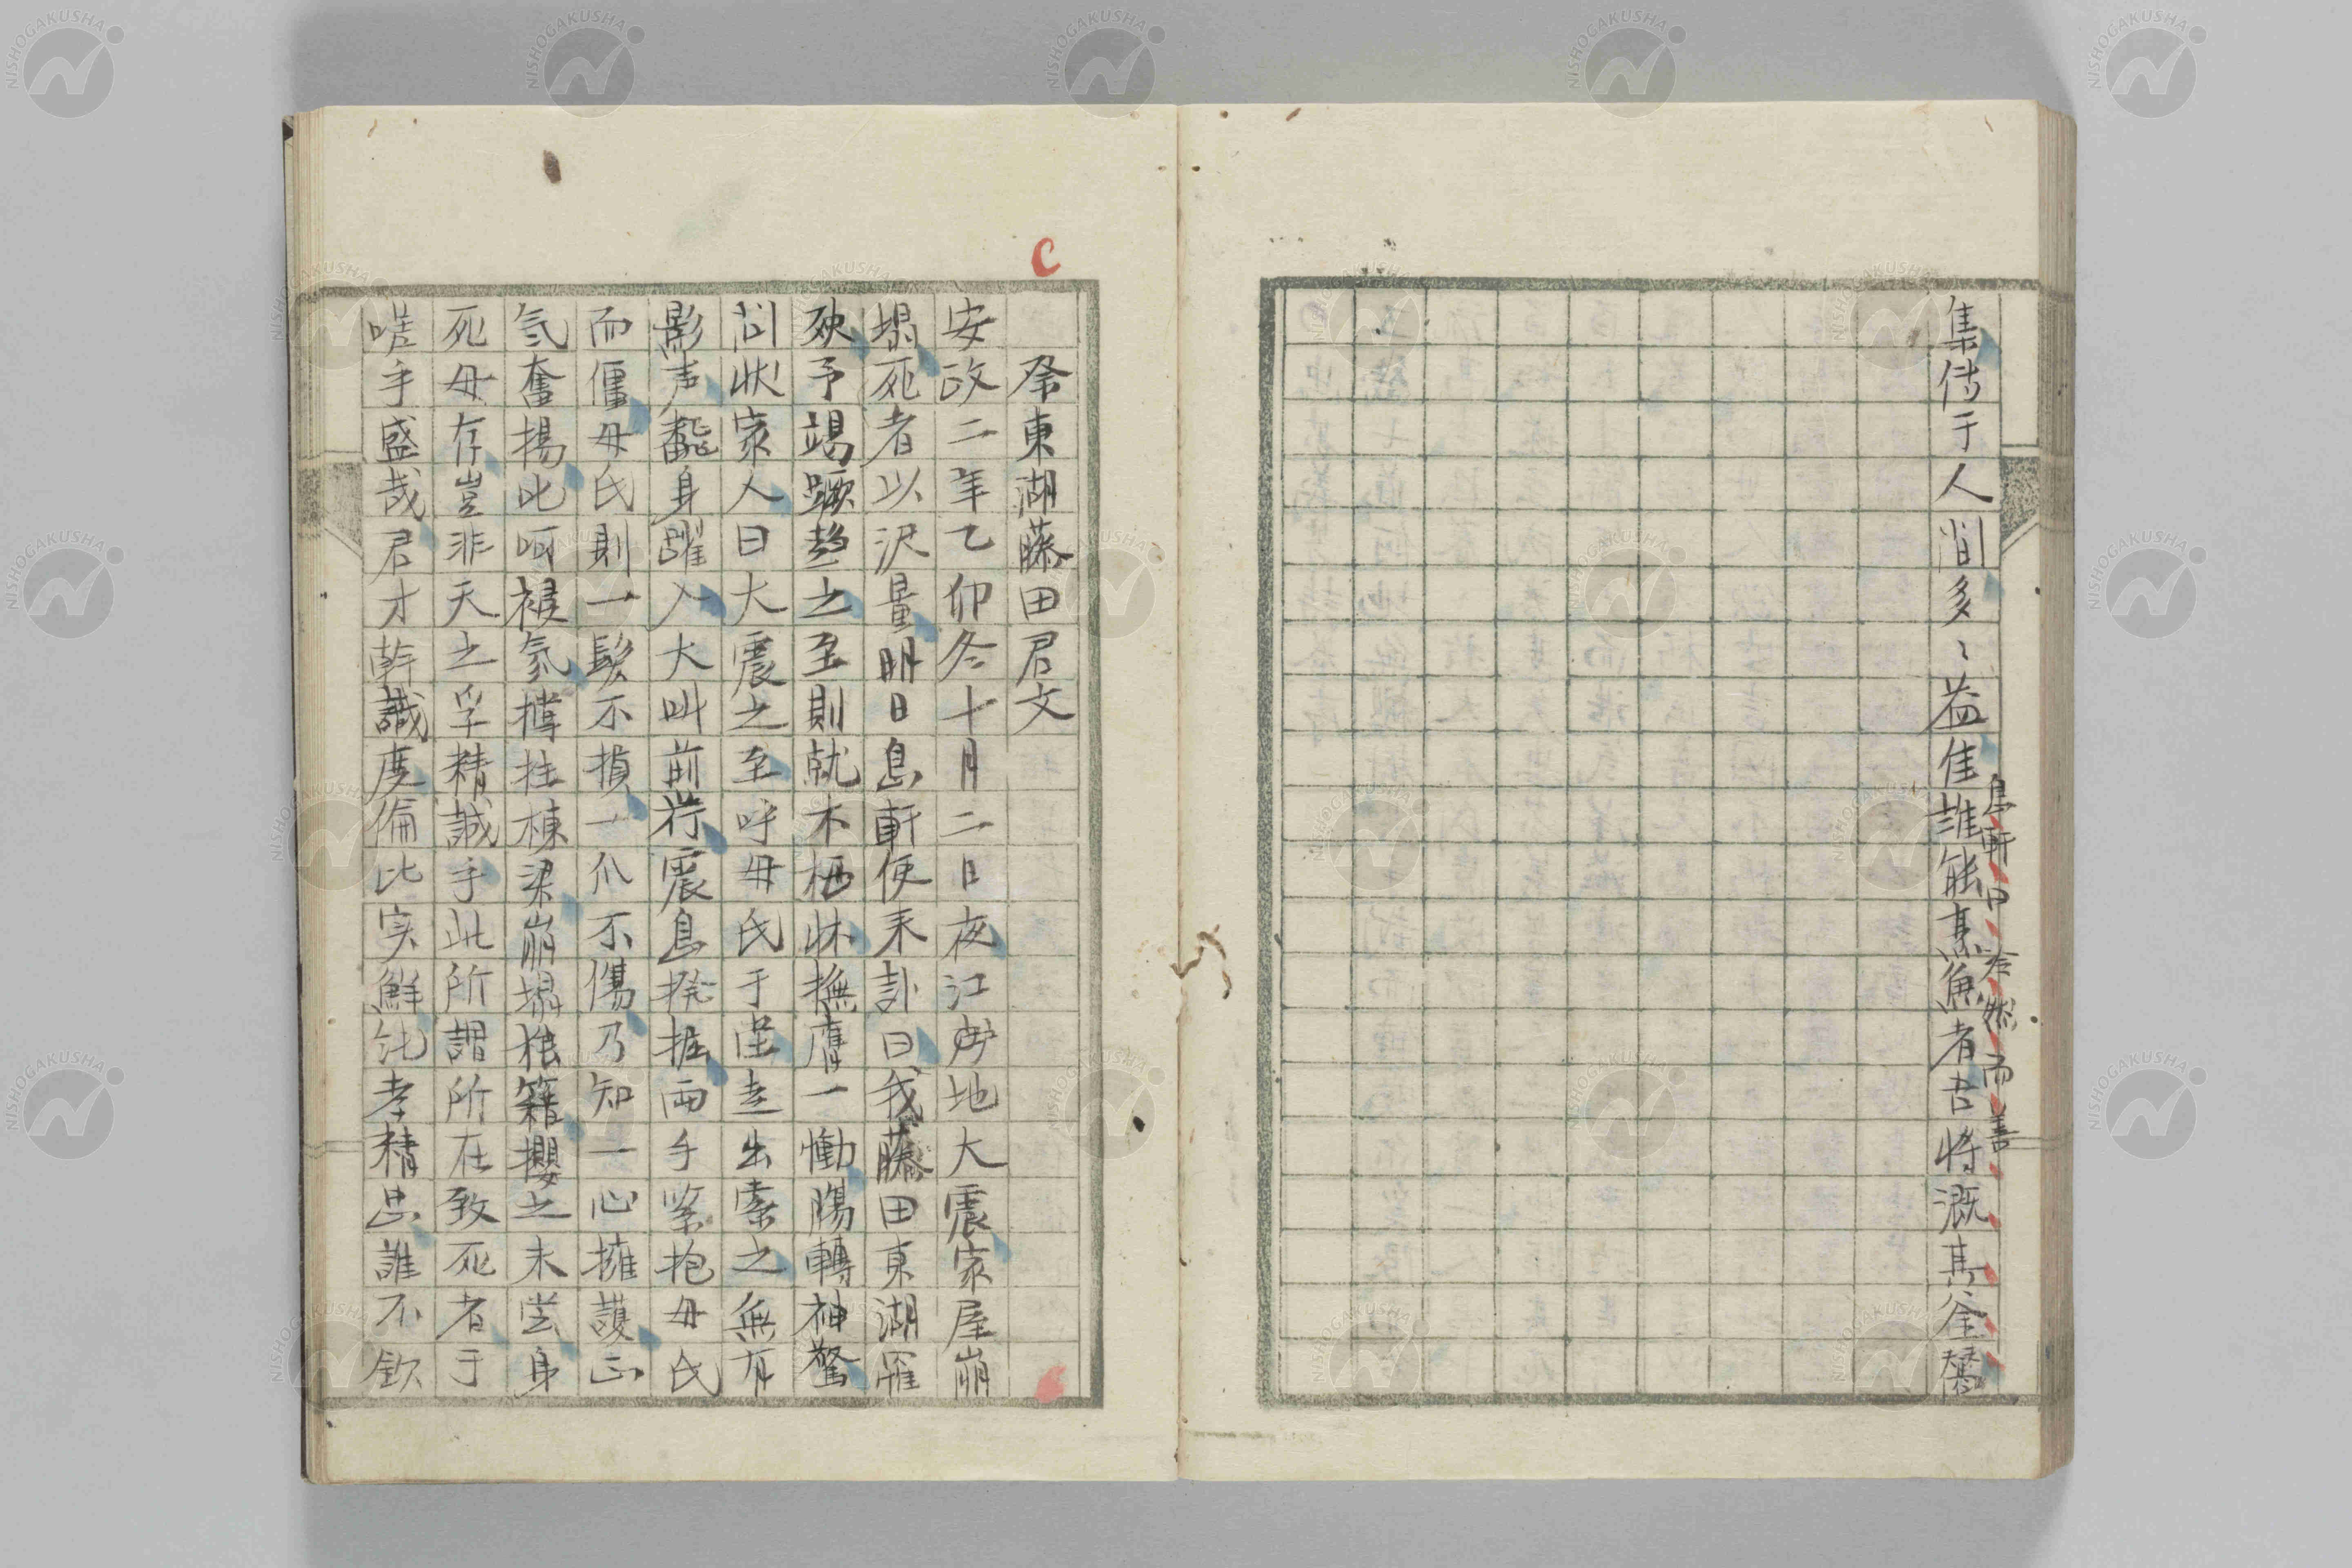 集傳于人間多〻益佳誰能烹魚者吾將漑其釜鬵
息軒曰冷然而善
祭東湖藤田君文
安政二年乙卯冬十月二日夜江戸地大震家屋崩
塌死者以沢量明日息軒使来訃曰我藤田東湖罹
殃予竭蹶趍之至則就木栖牀撫膺一慟膓轉神驚
问状家人曰大震之至呼母氏于厓走出索之無有
影声飜身躍入大叫前荐震息撥掘両手緊抱母氏
而僵母氏則一髮不損一爪不傷乃知一心擁護正
氣奮揚叱呵祲氛撑拄棟梁崩塌狼籍攖之未尝身
死母存豈非天之孚精誠乎此所謂所在致死者于
嗟乎盛哉君才幹識度倫比实鮮純孝精忠誰不欽
C